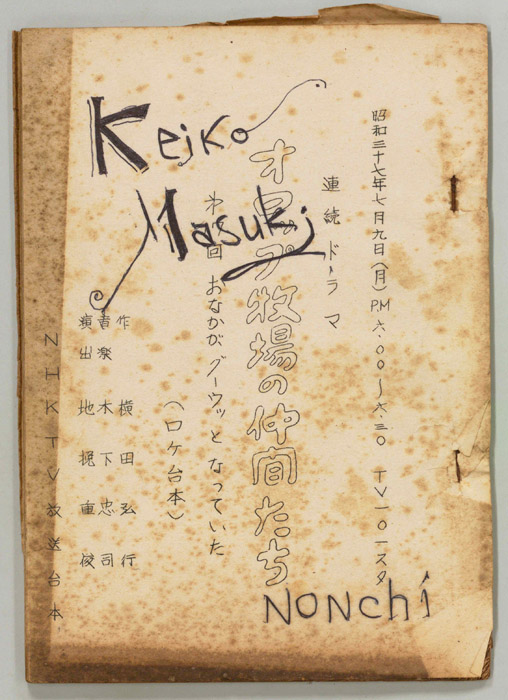 Keiko
Masuki
昭和三十七年七月九日(月) P.M 六.〇〇〜六.三〇 TV一〇一スタ
連続ドラマ
牧場の仲間たち
回 おなかがグーウッとなっていた
(ロケ台本)
作 横田弘行
音楽 木下忠司
演出 地挽重俊
NHKTV放送台本
NONchi